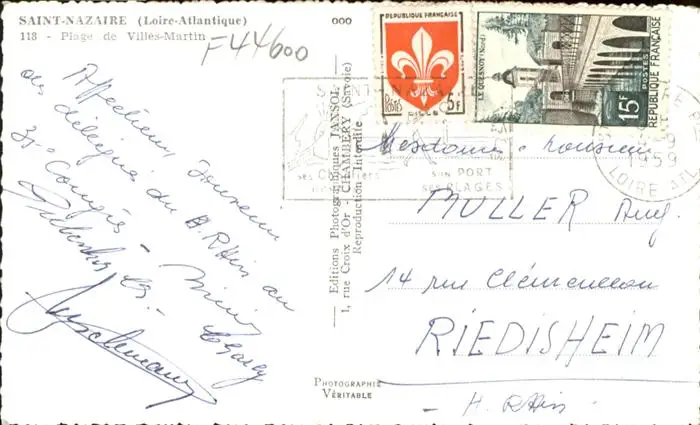 SAINT-NAZAIRE (Loire-Atlantique)
118 - Plage de Villès-Martin
F44600
ooo
Affectueux souvenir
des délégués du H. Rhin au
35 Congrès -
Charly
Editions Photographiques JANSOL
1, rue Croix d'Or - CHAMBÉRY (Savoie)
Reproduction Interdite
PHOTOGRAPHIE
VÉRITABLE
REPUBLIQUE FRANÇAISE
POSTES
LILLE
5F
LE QUESNOY (Nord)
15F
POSTES
REPUBLIQUE FRANÇAISE
SAINT-NAZAIRE
SES CHANTIERS
SON PORT
SES PLAGES
1959
LOIRE-ATL
Mesdames - Monsieur
MULLER Aug.
14 rue Clémenceau
RIEDISHEIM
- H. Rhin